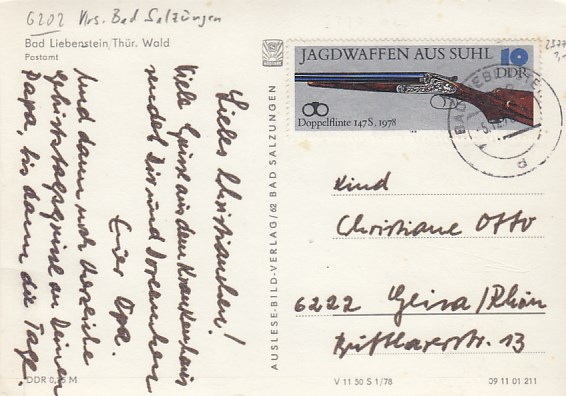 6202 Krs. Bad Salzungen
Bad Liebenstein/Thür. Wald
Postamt
Liebes Christianchen!
Viele Grüße aus dem Krankenhaus
sendet Dir und Doreanchen
Euer Opa.
Und dann noch herzliche
Geburtstagsgrüße an Deinen
Papa, bis dann die Tage.
DDR 0,25 M
AUSLESE-BILD-VERLAG/62 BAD SALZUNGEN
JAGDWAFFEN AUS SUHL 10
DDR
Doppelflinte 147 S, 1978
BAD LIEBENSTEIN
d
2377
3,-
Kind
Christiane Otto
6222 Geisa/Rhön
13
V 11 50 S 1/78
09 11 01 211